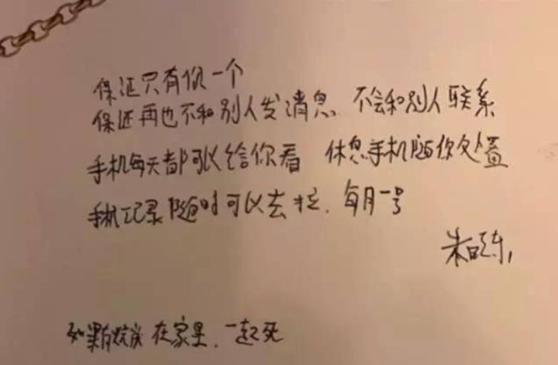 保证只有你一个
保证再也不和别人发消息 不会和别人联系
手机每天都可以给你看 休息手机随你处置
手机记录随时可以去拉, 每月一号
在家里, 一起死